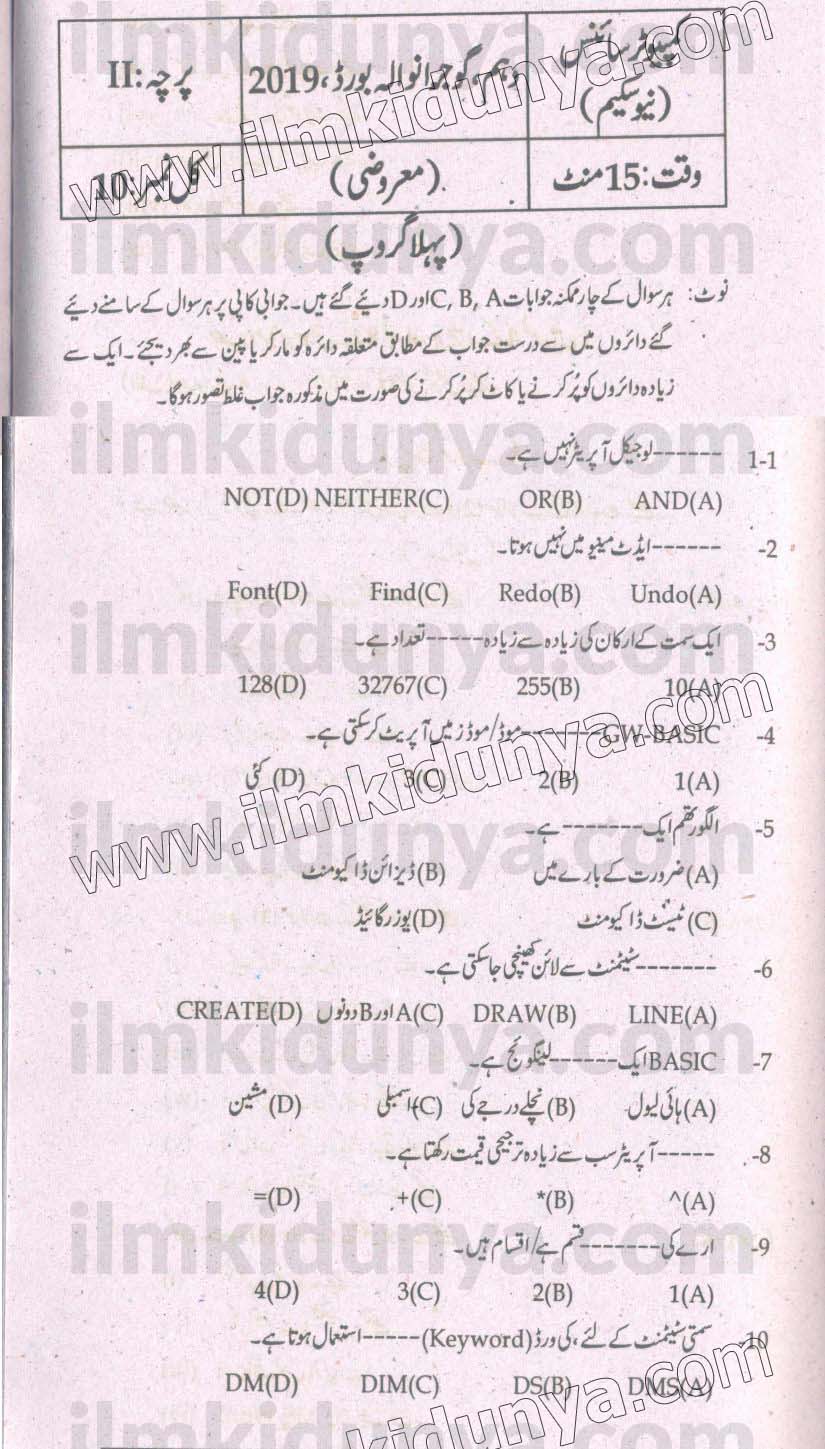 کمپیوٹر سائنس (نیو سکیم)
دہم، گوجرانوالہ بورڈ، 2019
پرچہ: II
وقت: 15 منٹ
(معروضی)
کل نمبر: 10
(پہلا گروپ)
نوٹ: ہر سوال کے چار ممکنہ جوابات C, B, A اور D دیئے گئے ہیں۔ جوابی کاپی پر ہر سوال کے سامنے دیئے
گئے دائروں میں سے درست جواب کے مطابق متعلقہ دائرہ کو مارکر یا پین سے بھر دیجئے۔ ایک سے
زیادہ دائروں کو پُر کرنے یا کاٹ کر پُر کرنے کی صورت میں مذکورہ جواب غلط تصور ہوگا۔
1-1 ------لوجیکل آپریٹر نہیں ہے۔
AND(A) OR(B) NEITHER(C) NOT(D)
-2 ------ایڈٹ مینیو میں نہیں ہوتا۔
Undo(A) Redo(B) Find(C) Font(D)
-3 ایک سمت کے ارکان کی زیادہ سے زیادہ-----تعداد ہے۔
10(A) 255(B) 32767(C) 128(D)
-4 GW-BASIC-------موڈ/موڈز میں آپریٹ کر سکتی ہے۔
1(A) 2(B) 3(C) (D) کئی
-5 الگورتھم ایک-------ہے۔
(A) ضرورت کے بارے میں (B) ڈیزائن ڈاکیومنٹ
(C) ٹیسٹ ڈاکیومنٹ (D) یوزر گائیڈ
-6 -------سٹیٹمنٹ سے لائن کھینچی جا سکتی ہے۔
LINE(A) DRAW(B) A(C) اور B دونوں CREATE(D)
-7 BASIC ایک------لینگوئج ہے۔
(A) ہائی لیول (B) نچلے درجے کی (C) اسمبلی (D) مشین
-8 -----آپریٹر سب سے زیادہ ترجیحی قیمت رکھتا ہے۔
^(A) *(B) +(C) =(D)
-9 ارے کی-------قسم ہے/اقسام ہیں۔
1(A) 2(B) 3(C) 4(D)
-10 سمتی سٹیٹمنٹ کے لئے، کی ورڈ (Keyword)-----استعمال ہوتا ہے۔
DMS(A) DS(B) DIM(C) DM(D)
www.ilmkidunya.com
ilmkidunya.com
ilmkidunya.com
ilmkidunya.com
www.ilmkidunya.com
ilmkidunya.com
ilmkidunya.com
ilmkidunya.com
ilmkidunya.com
kidunya.com